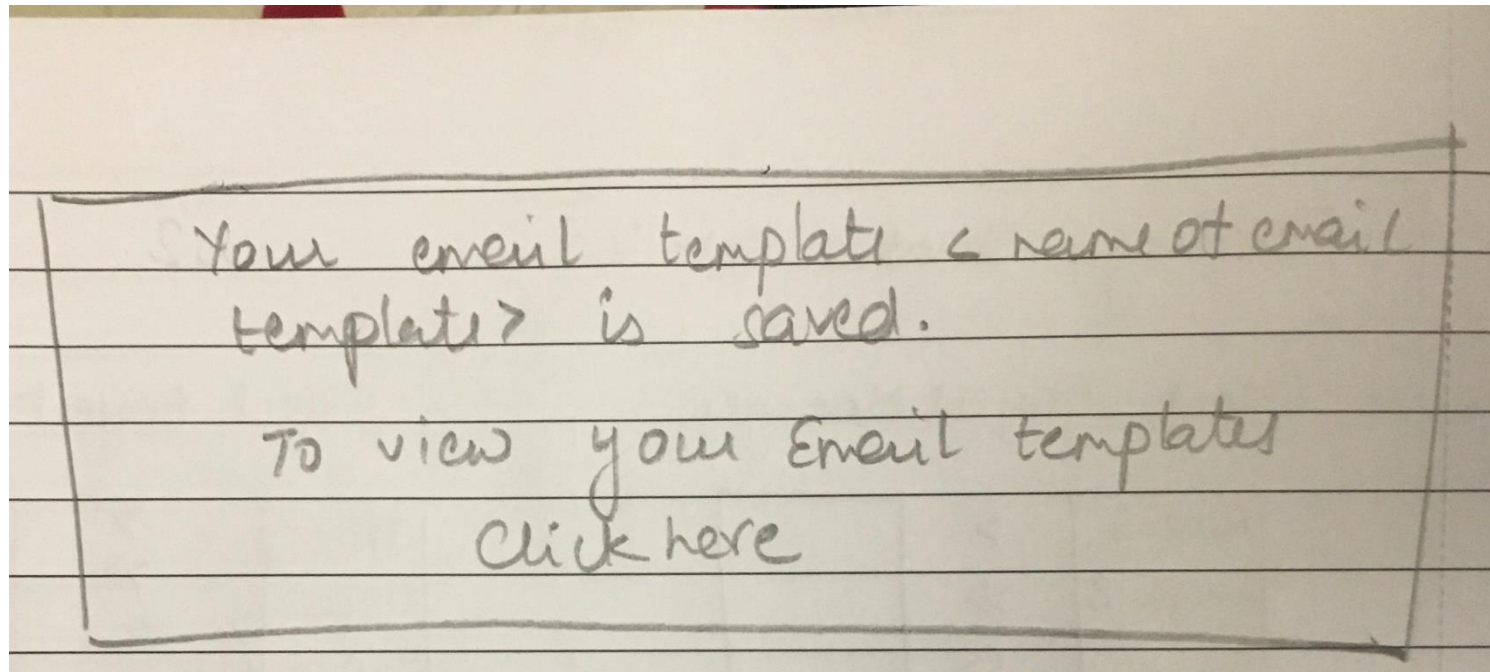 Your email template < name of email
template> is saved.
To view your Email templates
Click here